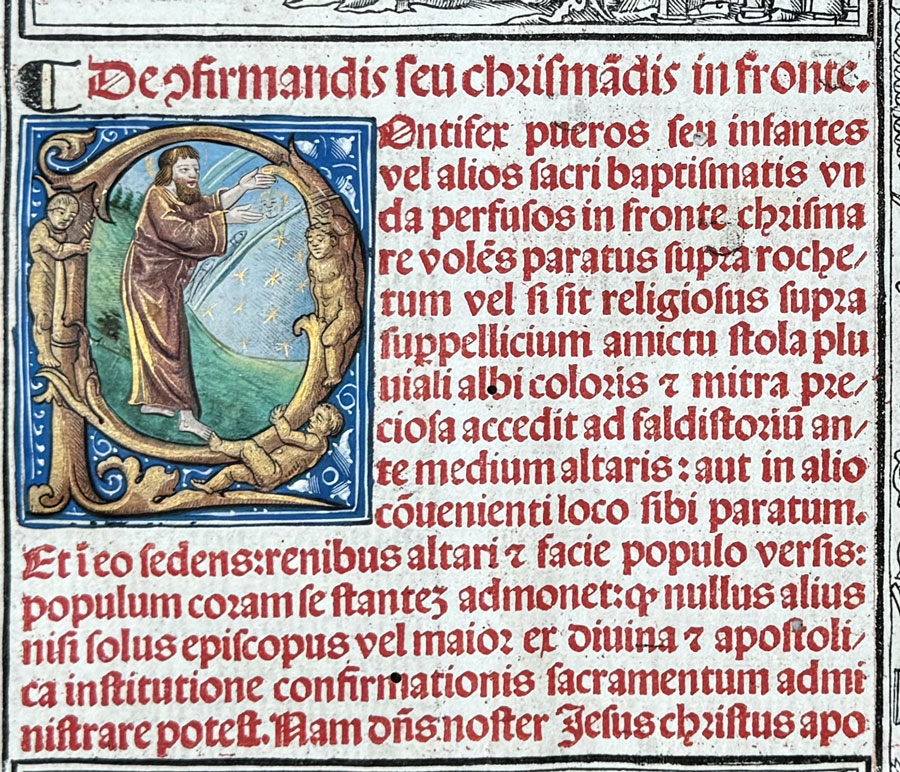 ¶ De ꝯfirmandis ſeu chriſmãdis in fronte.
POntifex pueros ſeu infantes
vel alios ſacri baptiſmatis vn
da perfuſos in fronte chriſma
re volẽs paratus ſupra roche⸗
tum vel ſi ſit religioſus ſupra
ſuppellicium amictu ſtola plu
uiali albi coloris ⁊ mitra pre⸗
cioſa accedit ad faldiſtoriũ an⸗
te medium altaris: aut in alio
cõuenienti loco ſibi paratum.
Et ĩ eo ſedens: renibus altari ⁊ facie populo verſis:
populum coram ſe ſtantez admonet: ꝙ nullus alius
niſi ſolus epiſcopus vel maior ex diuina ⁊ apoſtoli⸗
ca inſtitutione confirmationis ſacramentum admi
niſtrare poteſt. Nam dñs noſter Jeſus chriſtus apo